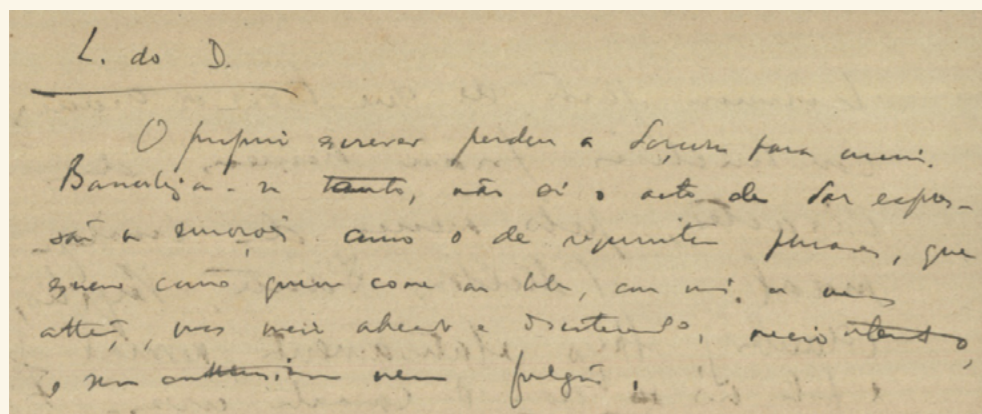 L. do D.
O proprio escrever perdeu a doçura para mim.
Banalizou-se tanto, não só o acto de dar expres-
são a emoções como o de requintar phrases, que
escrevo como quem come ou bebe, com mais ou menos
attenção, mas meio alheado e desinteressado, meio attento,
e sem enthusiasmo nem fulgor.